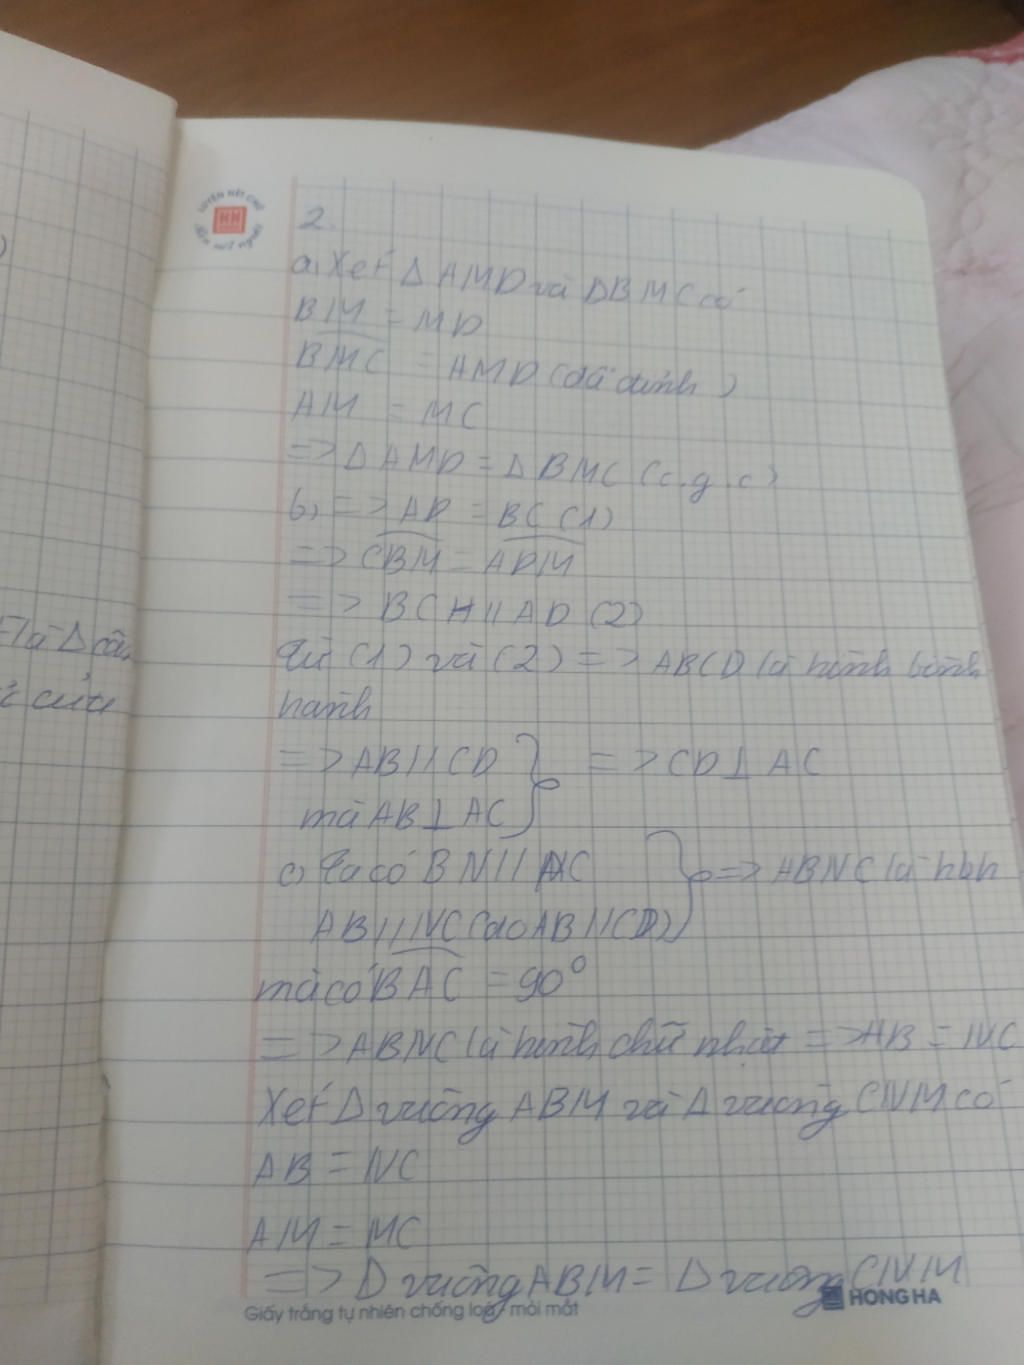 LUYỆN NÉT CHỮ
HH
rèn nết người
)
2.
a, Xét Δ AMD và ΔBMC có
BM = MD
BMC = AMD (đối đỉnh)
AM = MC
=> Δ AMD = Δ BMC (c.g.c)
b, => AD = BC (1)
=> CBM = ADM
=> BC // AD (2)
Từ (1) và (2) => ABCD là hình bình
hành
là Δ cân
của
=> AB // CD } => CD ⊥ AC
mà AB ⊥ AC
c, Ta có BN // AC } => ABNC là hbh
AB // NC (do AB // CD)
mà có BAC = 90°
=> ABNC là hình chữ nhật => AB = NC
Xét Δ vuông ABM và Δ vuông CNM có
AB = NC
AM = MC
=> Δ vuông ABM = Δ vuông CNM
Giấy trắng tự nhiên chống loá, mỏi mắt
HONG HA